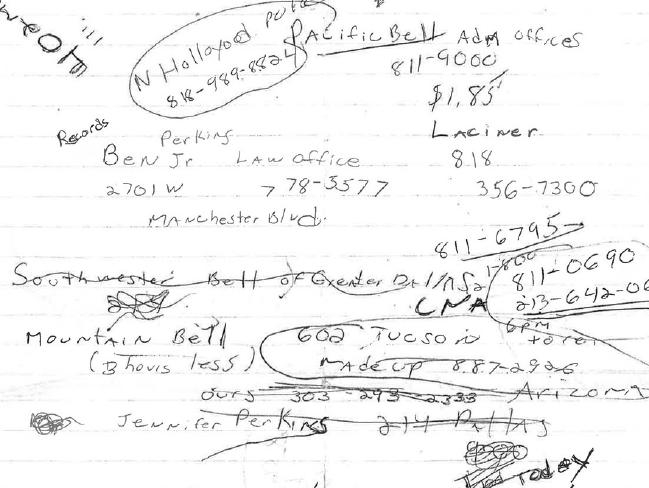 N Hollywood
818-989-8824
Pacific Bell Adm Offices
811-9000
$1,85
Laciner
Records
Perkins
Ben Jr Law office
818
2701 W
778-3577
356-7300
Manchester Blvd.
811-6795
1-800
811-0690
213-642-06
Southwester Bell of Greater
CNA
6pm
Mountain Bell
602 Tucson
(B hours less)
made up 887-2926
ours 303-293-2333 Arizona
Jennifer Perkins 214 Dallas
Today